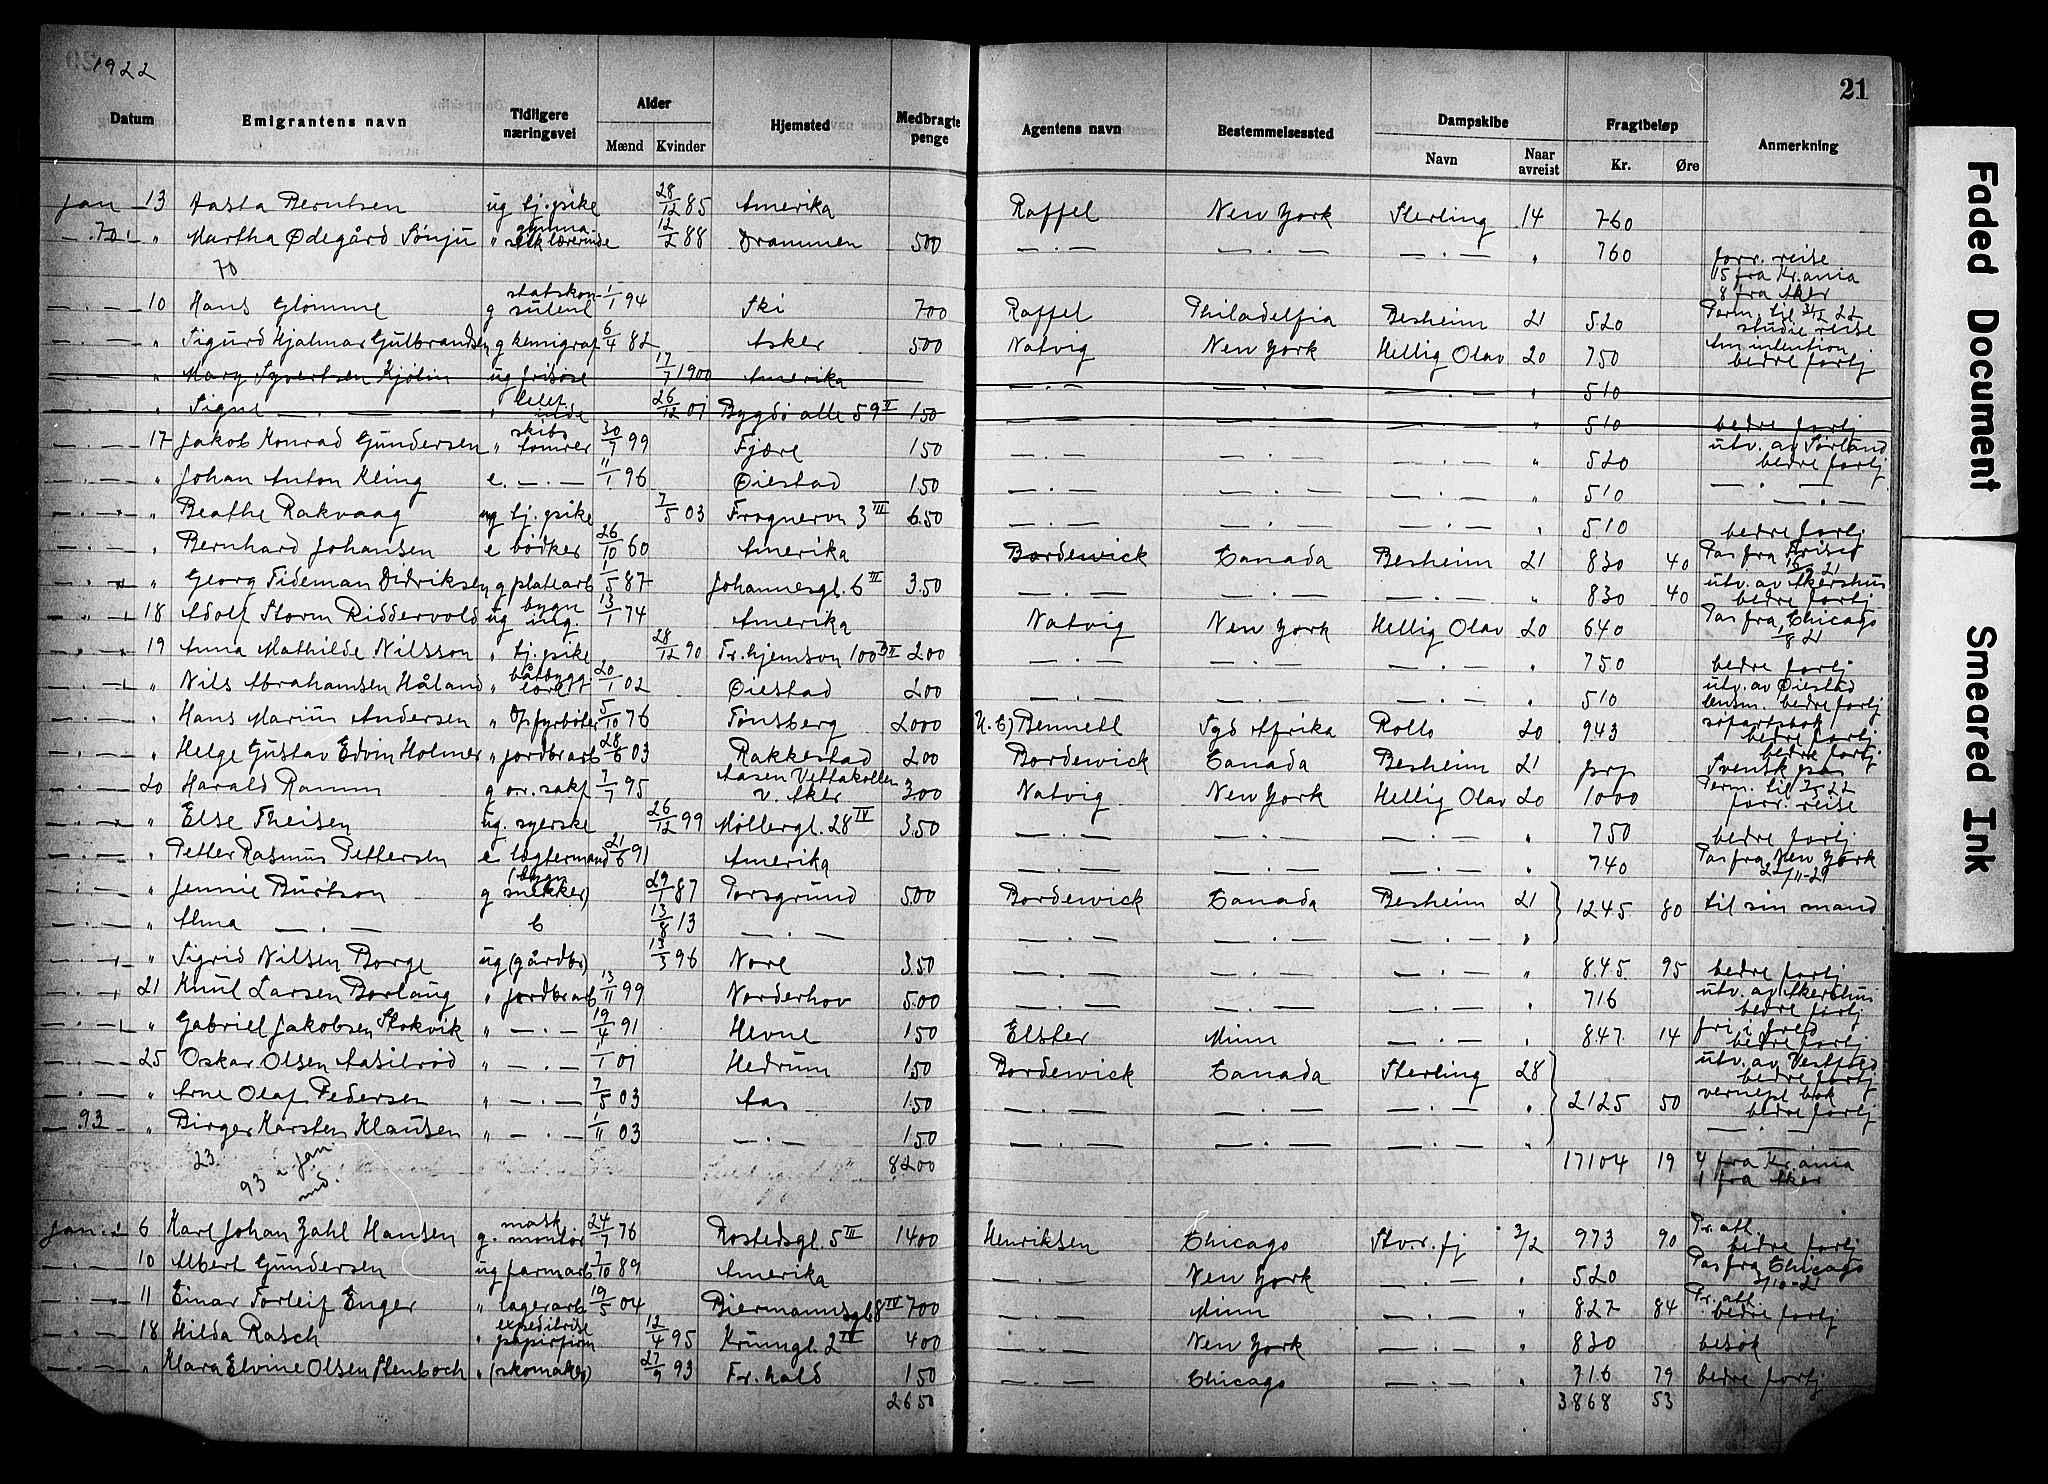 1922
21
Datum | Emigrantens navn | Tidligere næringsvei | Alder Mænd Kvinder | Hjemsted | Medbragte penge | Agentens navn | Bestemmelsessted | Dampskibe Navn | Naar avreist | Fragtbeløp Kr. Øre | Anmerkning
jan 13 Aasta Berntsen ug tj. pike 28/12 85 Amerika Raffel New York Sterling 14 760
70 " Martha Ødegård Sønju " gymnastiklærerinde 12/2 88 Drammen 500 — . — — . — — . — " 760 forr. reise
70 15 fra Kr.ania
8 fra Aker
— . — 10 Hans Glømme g statskonsulent 1/1 94 Ski 700 Raffel Philadelfia Besheim 21 520 Perm. til 31/12 22 studie reise
— . — " Sigurd Hjalmar Gulbrandsen g kemigraf 6/4 82 Asker 500 Natvig New York Hellig Olav 20 750 Am intention bedre fortj
— . — " Mary Syvertsen Kjölin ug frisøse 17/7 1900 Amerika — . — 510
— . — " Signe — . — " 26/12 01 Bygdö alle 59 II 150 — . — — . — — . — " 510 bedre fortj
— . — 17 Jakob Konrad Gundersen " skibstømrer 30/7 99 Fjære 150 — . — — . — — . — " 520 utv. av Sørland bedre fortj
— . — " Johan Anton Kling e. — . — 11/1 96 Øiestad 150 — . — — . — — . — " 510 — . —
— . — " Beathe Rakvaag ug tj. pike 7/5 03 Frognervn 3 III 650 — . — — . — — . — " 510 bedre fortj
— . — " Bernhard Johansen e bødker 26/10 60 Amerika Bordewick Canada Besheim 21 830 40 Pas fra
— . — " Georg Tideman Didriksen g platearb 1/5 87 Johannesgt. 6 III 350 — . — — . — — . — " 830 40 utv. av Akershus bedre fortj
— . — 18 Adolf Storm Riddervold ug bygn ing. 13/1 74 Amerika Natvig New York Hellig Olav 20 640 Pas fra Chicago 1/8 21
— . — 19 Anna Mathilde Nilsson " tj. pike 28/12 90 Fr. hjemsvn 100 II 200 — . — — . — — . — " 750 bedre fortj
— . — " Nils Abrahamsen Håland " båtbygg. 20/1 02 Øiestad 200 — . — — . — — . — " 510 utv. av Øiestad lensm. bedre fortj
— . — " Hans Marius Andersen " Opfyrbøter 5/10 76 Tønsberg 2000 Bennett Syd Afrika Rollo 20 943 søfartsbok bedre fortj
— . — " Helge Gustav Edvin Holmer " jordbrarb 28/6 03 Rakkestad 200 Bordewick Canada Besheim 21 prp bedre fortj Svensk pas
— . — 20 Harald Ramm g or. sakf 7/7 95 Aasen Vettakollen v. Aker 300 Natvig New York Hellig Olav 20 1000 Perm. til 22 forr. reise
— . — " Else Theisen ug. syerske 26/12 99 Møllergt. 28 IV 350 — . — — . — — . — " 750 bedre fortj
— . — " Petter Rasmus Pettersen e lægtermand 21/6 91 Amerika — . — — . — — . — " 740 Pas fra New York 22/11-29
— . — " Jennie Burtson g (bygn snekker) 29/1 87 Porsgrund 500 Bordewick Canada Besheim 21 1245 80 til sin mand
— . — " Alma — . — 13/8 13 — . — — . — — . — — . — "
— . — " Sigrid Nilsen Borge ug (gårdbr) 13/3 96 Nore 350 — . — — . — — . — " 845 95 bedre fortj
— . — 21 Knut Larsen Borlaug " jordbrarb 13/11 99 Norderhov 500 — . — — . — — . — " 716 utv. av Akershus bedre fortj
— . — " Gabriel Jakobsen Stokvik " — . — 19/4 91 Hevne 150 Elster Minn — . — " 847 14 fri i fred bedre fortj
— . — 25 Oskar Olsen Aasilrød " — . — 1/1 01 Hedrum 150 Bordewick Canada Sterling 28 utv. av Vestfold bedre fortj
— . — " Arne Olaf Pedersen " — . — 7/5 03 Aas 150 — . — — . — — . — " 2125 50 vernepl bok bedre fortj
93 " Birger Karsten Klausen " — . — 1/11 03 — . — 150 — . — — . — — . — " — . —
23 8200 17104 19 4 fra Kr.ania
93 jan md. 1 fra Aker
jan. 6 Karl Johan Zahl Hansen g. mask. montør 24/7 76 Rostedsgt. 5 III 1400 Henriksen Chicago Stv.r.fj 3/2 973 90 Pr. att. bedre fortj
— . — 10 Albert Gundersen ug farmarb. 7/10 89 Amerika — . — New York — . — " 520 Pas fra Chicago
— . — 11 Einar Torleif Enger " lagerarb 19/5 04 Biermannsgt 8 IV 700 — . — Minn — . — " 827 84 Pr. att. bedre fortj
— . — 18 Hilda Rasch " expeditrise papirfirm 12/4 95 Krumgt. 2 IV 400 — . — New York — . — " 830 besøk
— . — " Klara Elvine Olsen Stenboch " (skomaker) 27/9 93 Fr. hald 150 — . — Chicago — . — " 716 79 bedre fortj
2650 3868 53
Faded Document
Smeared Ink